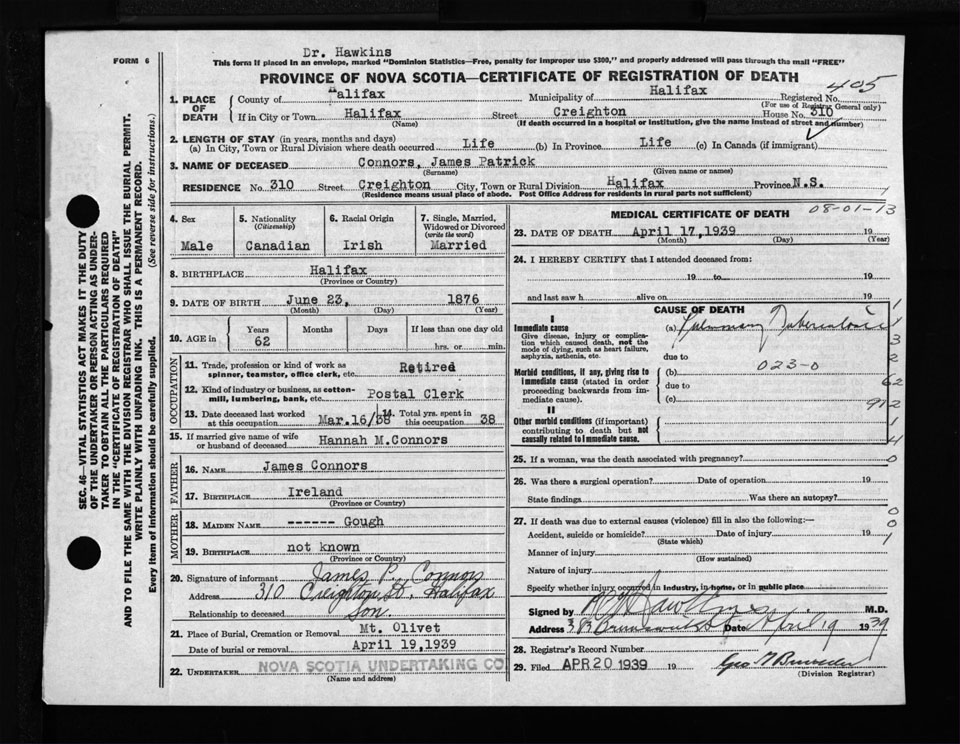 Dr. Hawkins
FORM 6
This form if placed in an envelope, marked "Dominion Statistics—Free, penalty for improper use $300," and properly addressed will pass through the mail "FREE"
PROVINCE OF NOVA SCOTIA—CERTIFICATE OF REGISTRATION OF DEATH
405
1. PLACE OF DEATH County of Halifax Municipality of Halifax Registered No.
(For use of Registrar General only)
If in City or Town Halifax Street Creighton House No. 310
(Name) (If death occurred in a hospital or institution, give the name instead of street and number)
2. LENGTH OF STAY (in years, months and days)
(a) In City, Town or Rural Division where death occurred Life (b) In Province Life (c) In Canada (if immigrant)
3. NAME OF DECEASED Connors, James Patrick
(Surname) (Given name or names)
RESIDENCE No. 310 Street Creighton City, Town or Rural Division Halifax Province N.S.
(Residence means usual place of abode. Post Office Address for residents in rural parts not sufficient)
SEC. 46—VITAL STATISTICS ACT MAKES IT THE DUTY
OF THE UNDERTAKER OR PERSON ACTING AS UNDER-
TAKER TO OBTAIN ALL THE PARTICULARS REQUIRED
IN THE "CERTIFICATE OF REGISTRATION OF DEATH"
AND TO FILE THE SAME WITH THE DIVISION REGISTRAR WHO SHALL ISSUE THE BURIAL PERMIT.
WRITE PLAINLY WITH UNFADING INK. THIS IS A PERMANENT RECORD.
Every item of information should be carefully supplied. (See reverse side for instructions.)
4. Sex 5. Nationality 6. Racial Origin 7. Single, Married,
(Citizenship) Widowed or Divorced
(write the word)
Male Canadian Irish Married
8. BIRTHPLACE Halifax
(Province or Country)
9. DATE OF BIRTH June 23, 1876
(Month) (Day) (Year)
10. AGE in Years Months Days If less than one day old
62 hrs. or min.
OCCUPATION
11. Trade, profession or kind of work as Retired
spinner, teamster, office clerk, etc.
12. Kind of industry or business, as cotton-
mill, lumbering, bank, etc. Postal Clerk
13. Date deceased last worked 14. Total yrs. spent in
at this occupation Mar.16/38 this occupation 38
15. If married give name of wife
or husband of deceased Hannah M.Connors
FATHER
16. NAME James Connors
17. BIRTHPLACE Ireland
(Province or Country)
MOTHER
18. MAIDEN NAME ------ Gough
19. BIRTHPLACE not known
(Province or Country)
20. Signature of informant James P. Connors
Address 310 Creighton St. Halifax
Relationship to deceased Son.
21. Place of Burial, Cremation or Removal Mt. Olivet
Date of burial or removal April 19,1939
22. UNDERTAKER NOVA SCOTIA UNDERTAKING CO
(Name and address)
MEDICAL CERTIFICATE OF DEATH 08-01-13
1
23. DATE OF DEATH April 17,1939 19
(Month) (Day) (Year)
24. I HEREBY CERTIFY that I attended deceased from:
19 to 19
and last saw h alive on 19
CAUSE OF DEATH
I
Immediate cause (a) Pulmonary Tuberculosis
Give disease, injury or complica-
tion which caused death, not the
mode of dying, such as heart failure,
asphyxia, asthenia, etc. due to
Morbid conditions, if any, giving rise to (b) 023-0
immediate cause (stated in order due to
proceeding backwards from im-
mediate cause). (c)
II
Other morbid conditions (if important)
contributing to death but not
causally related to immediate cause.
62
912
25. If a woman, was the death associated with pregnancy?
26. Was there a surgical operation? Date of operation 19
State findings Was there an autopsy?
27. If death was due to external causes (violence) fill in also the following:—
Accident, suicide or homicide? Date of injury 19
(State which)
Manner of injury
(How sustained)
Nature of injury
Specify whether injury occurred in industry, in home, or in public place
Signed by Hawkins M.D.
Address Brunswick St Date April 19 1939
28. Registrar's Record Number
29. Filed APR 20 1939 19
(Division Registrar)